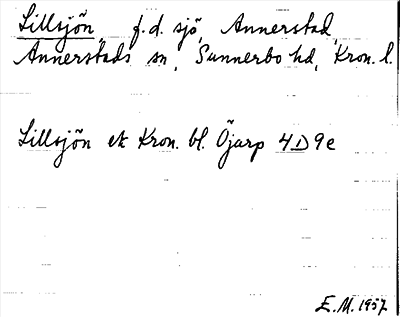 Lillsjön, f.d. sjö, Annerstad,
Annerstads sn, Sunnerbo hd, Kron. l.
Lillsjön ek Kron. bl. Öjarp 4D9e
E.M. 1957